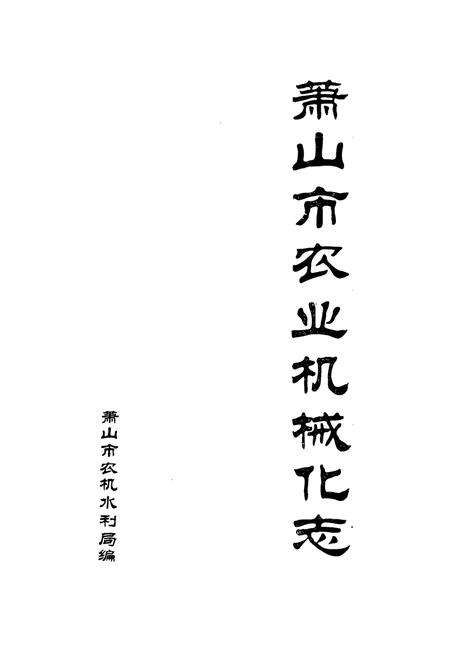 萧山市农业机械化志
萧山市农机水利局编